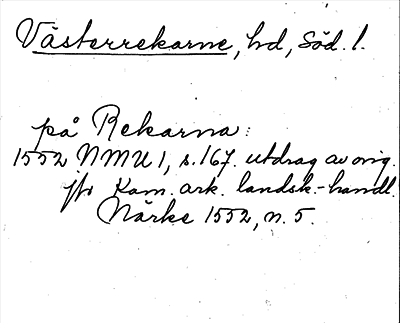 Västerrekarne, hd, Söd. l.
på Rekarna:
1552 NMU 1, s. 167. utdrag av orig.
jfr Kam. ark. landsk.-handl.
Närke 1552, n. 5.